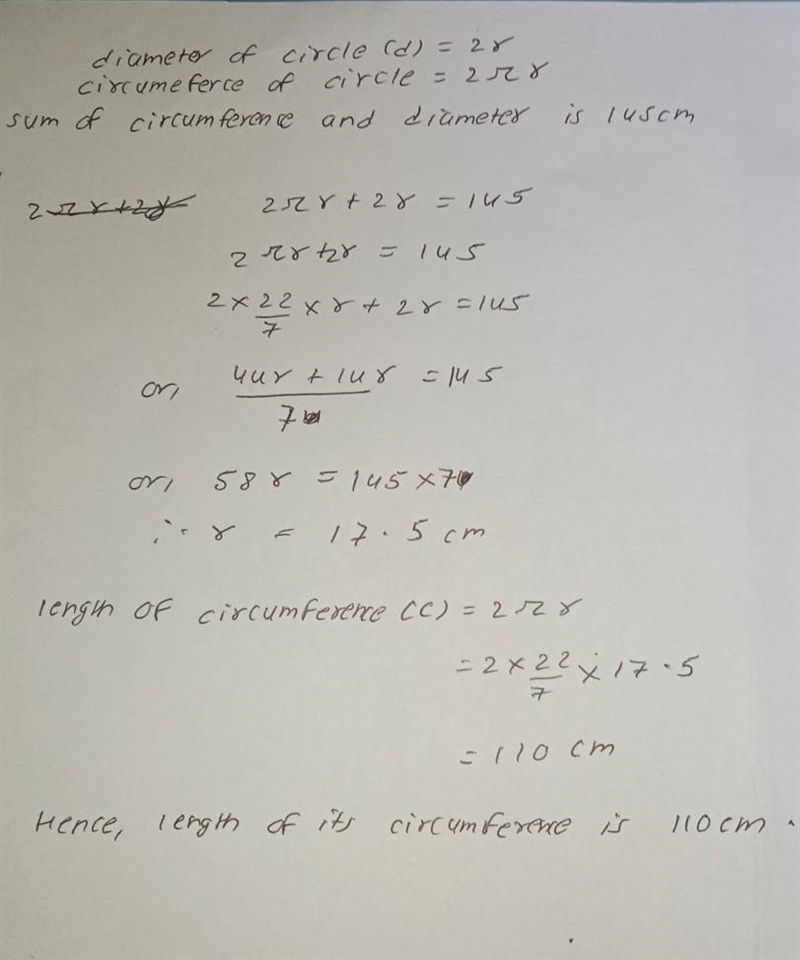 diameter of circle (d) = 2r
circumeferce of circle = 2πr
sum of circumference and diameter is 145cm
2πr+2r 2πr + 2r = 145
2πr+2r = 145
2 × 22/7 × r + 2r = 145
or, (44r + 14r)/7 = 145
or, 58r = 145 × 7
∴ r = 17.5 cm
length of circumference (C) = 2πr
= 2 × 22/7 × 17.5
= 110 cm
Hence, length of its circumference is 110cm.